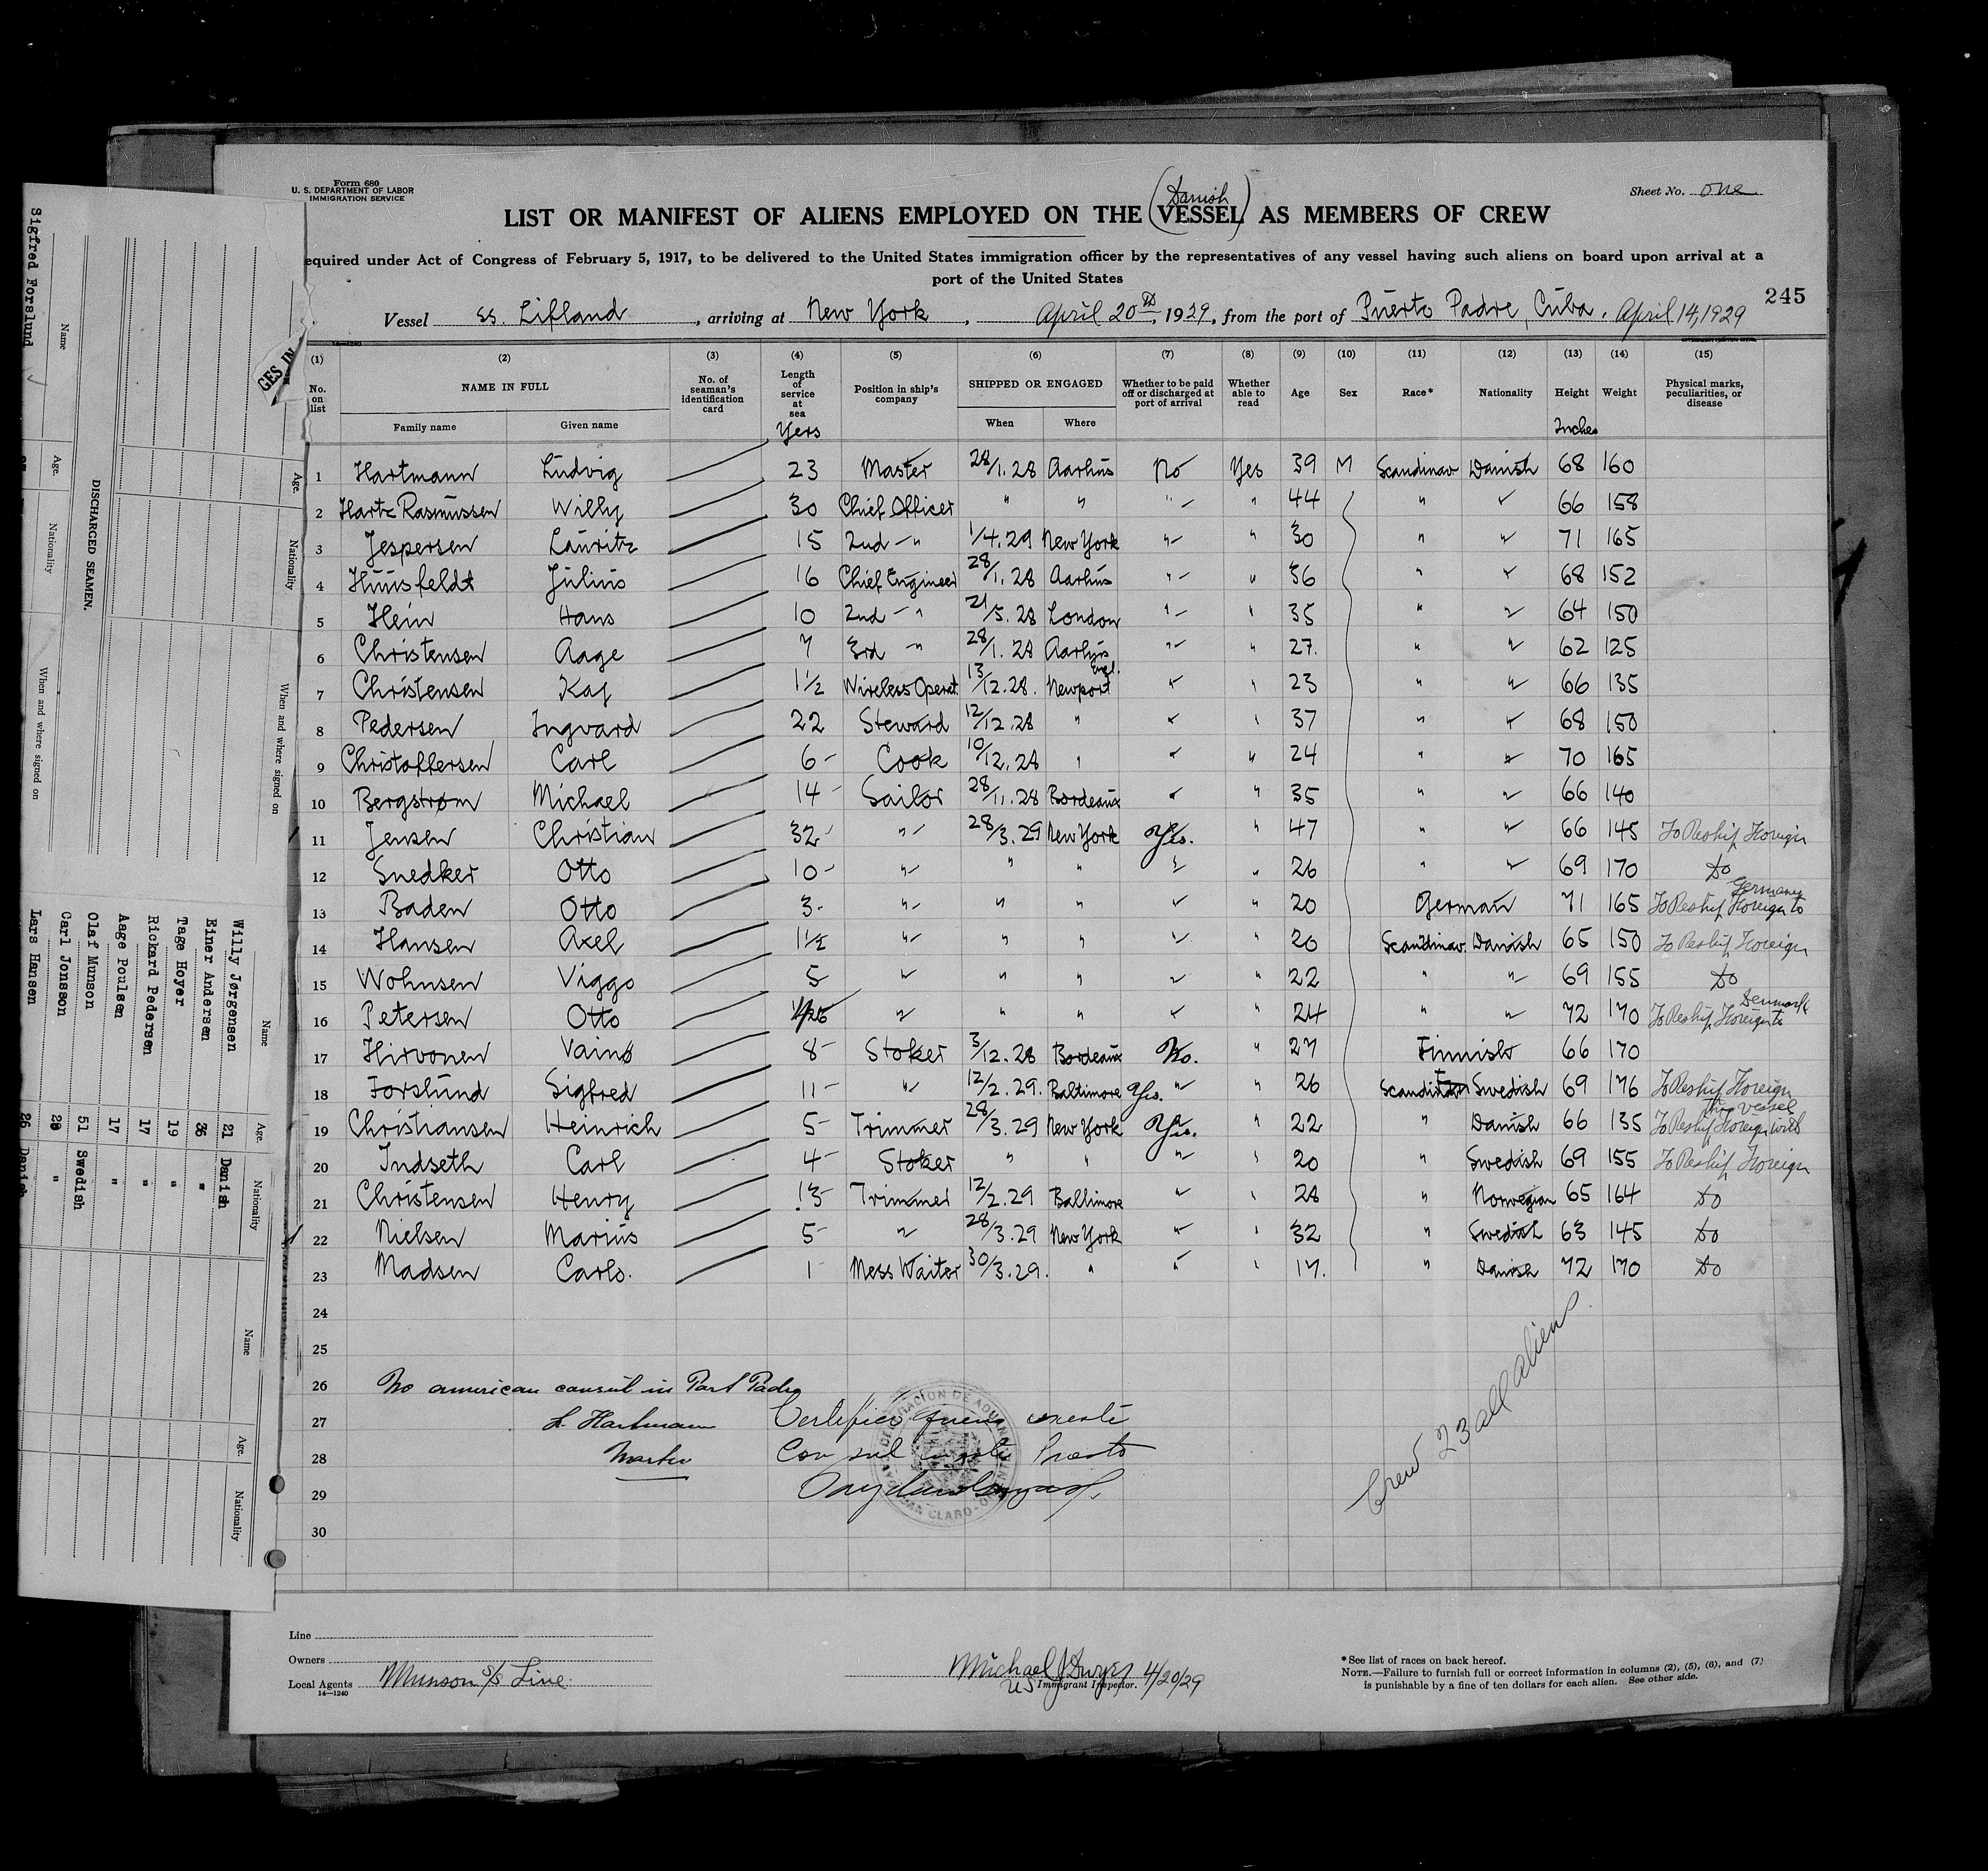 Form 680
U. S. DEPARTMENT OF LABOR
IMMIGRATION SERVICE
Sheet No. one
Danish
LIST OR MANIFEST OF ALIENS EMPLOYED ON THE (VESSEL) AS MEMBERS OF CREW
equired under Act of Congress of February 5, 1917, to be delivered to the United States immigration officer by the representatives of any vessel having such aliens on board upon arrival at a
port of the United States
245
Vessel ss. Lifland, arriving at New York, April 20th, 1929, from the port of Puerto Padre, Cuba. April 14, 1929
14—1240
(1) (2) (3) (4) (5) (6) (7) (8) (9) (10) (11) (12) (13) (14) (15)
No. on list NAME IN FULL No. of seaman's identification card Length of service at sea Position in ship's company SHIPPED OR ENGAGED Whether to be paid off or discharged at port of arrival Whether able to read Age Sex Race* Nationality Height Weight Physical marks, peculiarities, or disease
Family name Given name Yers When Where Inches
1 Hartmann Ludvig 23 Master 28/1.28 Aarhus No Yes 39 M Scandinav Danish 68 160
2 Hartz Rasmussen Willy 30 Chief Officer " " " " 44 " " 66 158
3 Jespersen Lauritz 15 2nd " 1/4.29 New York " " 30 " " 71 165
4 Huusfeldt Julius 16 Chief Engineer 28/1.28 Aarhus " " 36 " " 68 152
5 Hein Hans 10 2nd " 21/5.28 London " " 35 " " 64 150
6 Christensen Aage 7 3rd " 28/1.28 Aarhus " " 27. " " 62 125
7 Christensen Kaj 1½ Wireless Operat. 13/12.28. Newport Engl. " " 23 " " 66 135
8 Pedersen Ingvard 22 Steward 12/12.28 " " " 37 " " 68 150
9 Christoffersen Carl 6- Cook 10/12.28 " " " 24 " " 70 165
10 Bergstrøm Michael 14- Sailor 28/11.28 Bordeaux " " 35 " " 66 140
11 Jensen Christian 32- " 28/3.29 New York Yes. " 47 " " 66 145 To Reship Foreign
12 Snedker Otto 10- " " " " " 26 " " 69 170 Do
13 Baden Otto 3- " " " " " 20 German 71 165 To Reship Foreign to Germany
14 Hansen Axel 1½ " " " " " 20 Scandinav. Danish 65 150 To Reship Foreign
15 Wohnsen Viggo 5 " " " " " 22 " " 69 155 Do
16 Petersen Otto " " " " " 24 " " 72 170 To Reship Foreign to Denmark
17 Hirvonen Vaino 8- Stoker 3/12.28 Bordeaux No. " 27 Finnish 66 170
18 Forslund Sigfred 11- " 12/2.29. Baltimore Yes. " " 26 Scandinav Swedish 69 176 To Reship Foreign
19 Christiansen Heinrich 5- Trimmer 28/3.29 New York Yes. " 22 " Danish 66 135 To Reship Foreign with this vessel
20 Indseth Carl 4- Stoker " " " " 20 " Swedish 69 155 To Reship Foreign
21 Christensen Henry 13- Trimmer 12/2.29 Baltimore " " 28 " Norwegian 65 164 Do
22 Nielsen Marius 5- " 28/3.29 New York " " 32 " Swedish 63 145 Do
23 Madsen Carlo. 1- Mess Waiter 30/3.29. " " " 17. " Danish 72 170 Do
24
25
26 No american consul in Port Padre
27 L. Hartmann Certifico
28 Master Consul Puerto
29
30
Crew 23 all aliens
Line
Owners
Local Agents Munson S/S Line
14—1240
Michael J Dwyer 4/20/29
US Immigrant Inspector.
*See list of races on back hereof.
NOTE.—Failure to furnish full or correct information in columns (2), (5), (6), and (7)
is punishable by a fine of ten dollars for each alien. See other side.
GES IN
Sigfred Forslund
Name Age. Nationality When and where signed on
DISCHARGED SEAMEN.
Age. Nationality When and where signed on
Name Age. Nationality
Willy Jørgensen 21 Danish
Einer Andersen 36 "
Tage Hoyer 19 "
Rickard Pedersen 17 "
Aage Poulsen 17 "
Olaf Munson 51 Swedish
Carl Jonsson "
Lars Hansen 26 Danish
Name Age. Nationality